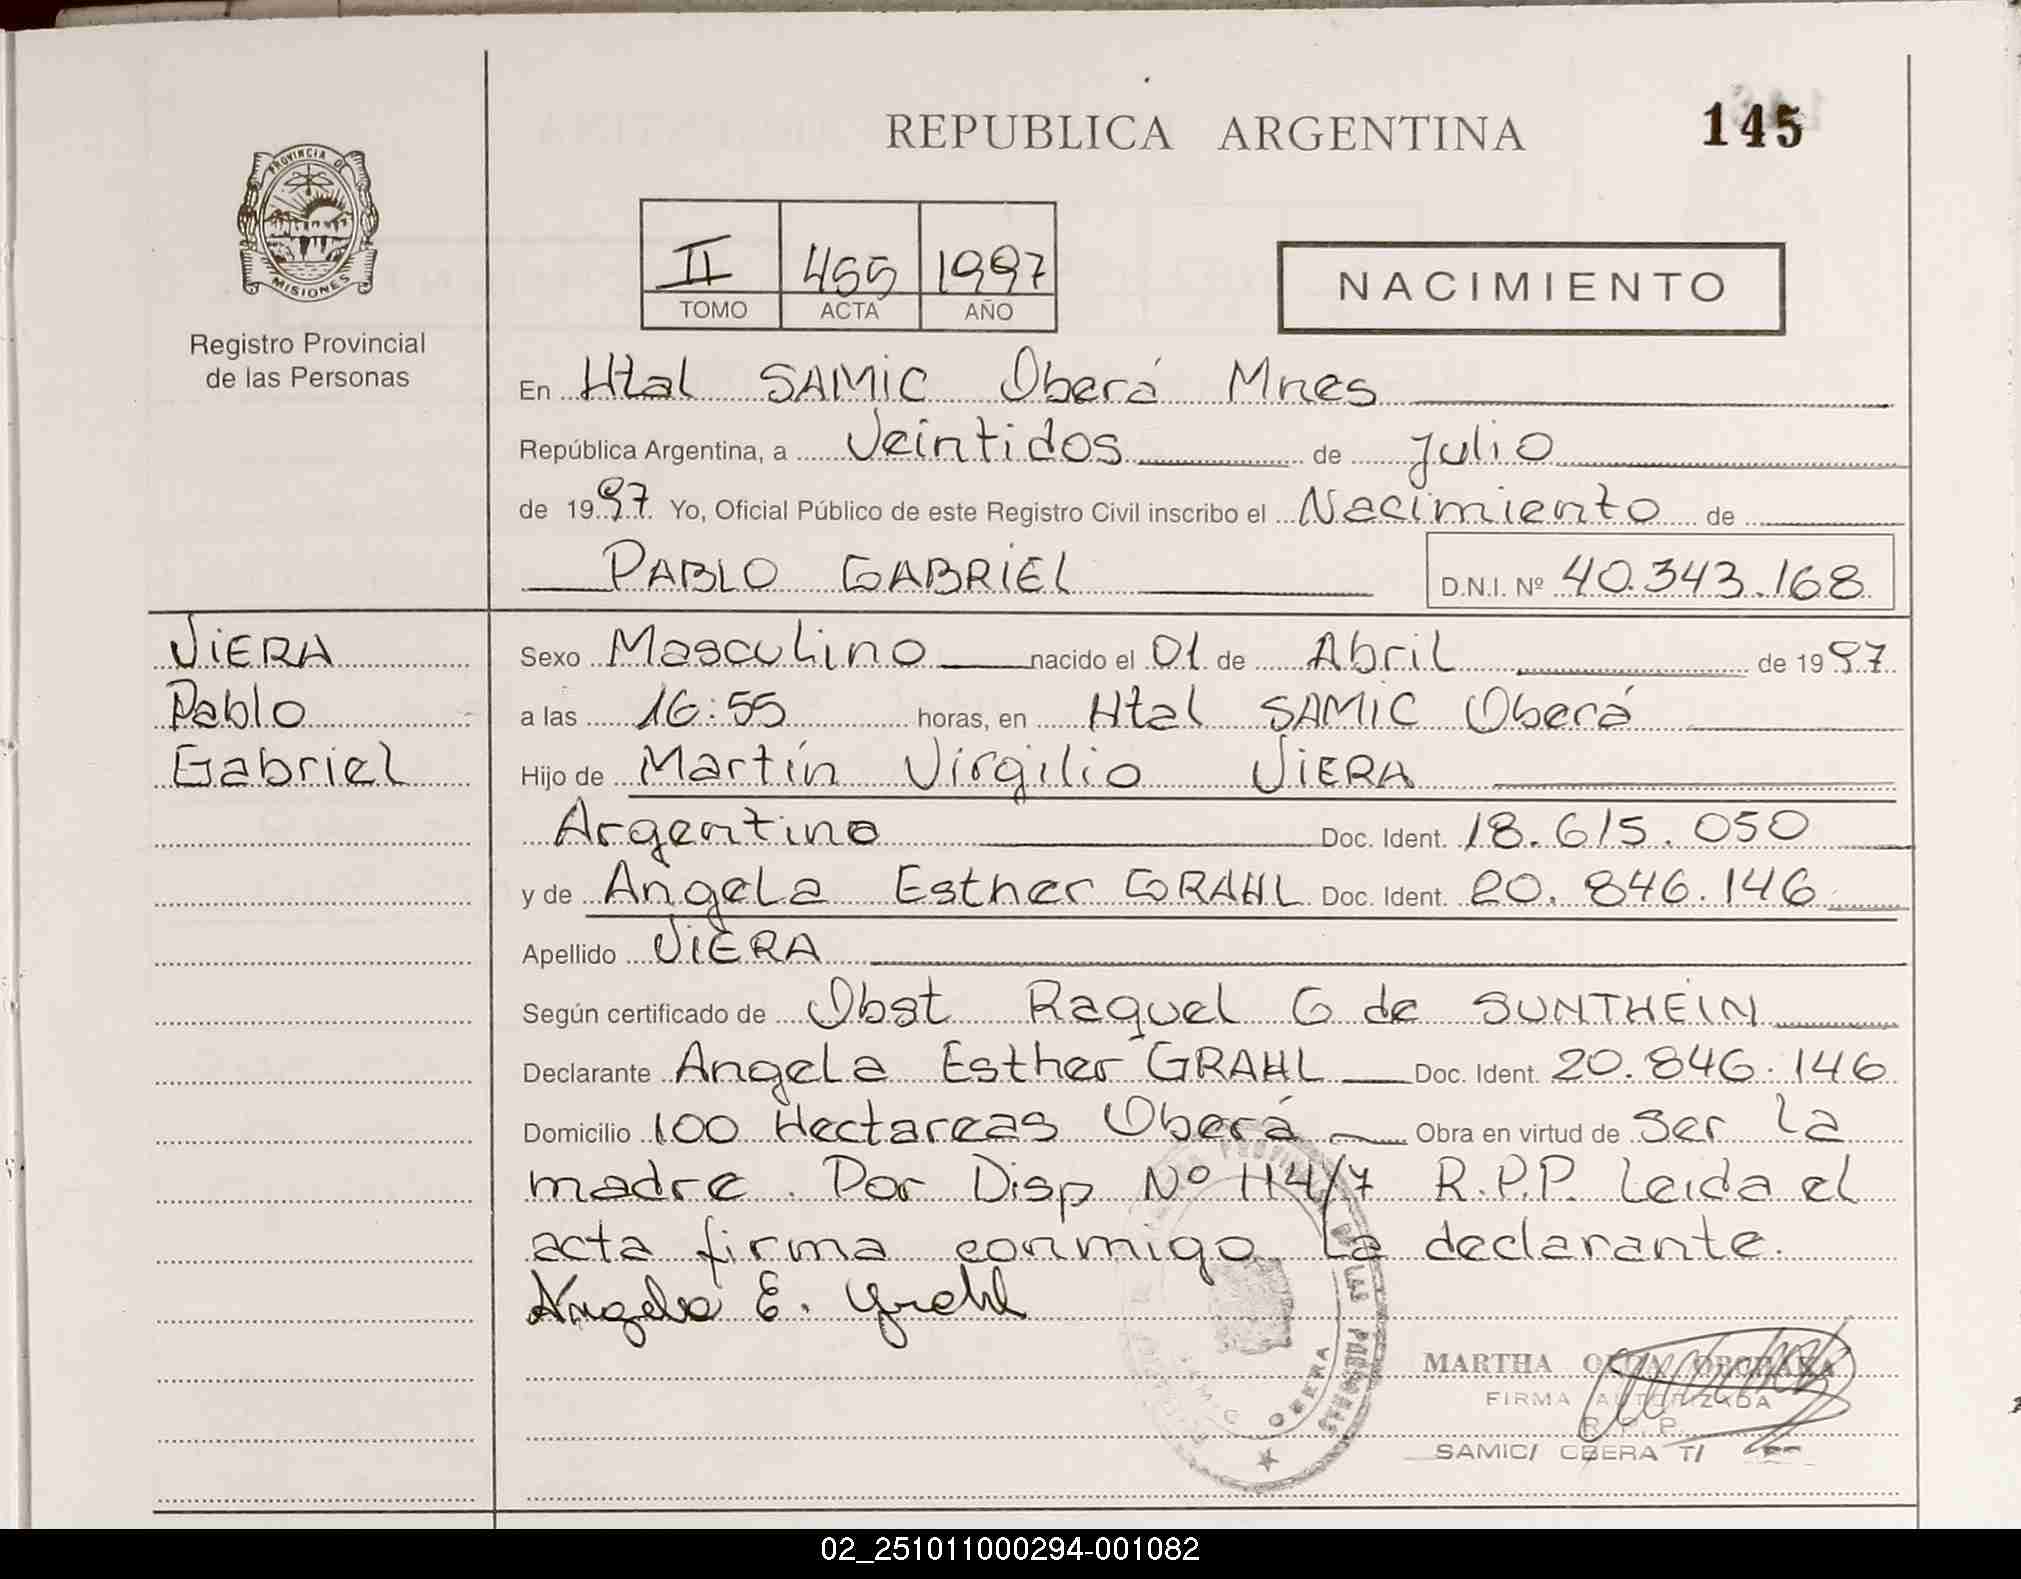 REPUBLICA ARGENTINA
145
PROVINCIA DE
MISIONES
Registro Provincial
de las Personas
II 455 1997
TOMO ACTA AÑO
NACIMIENTO
En Htal SAMIC Oberá Mnes
República Argentina, a Veintidos de Julio
de 1997 Yo, Oficial Público de este Registro Civil inscribo el Nacimiento de
PABLO GABRIEL D.N.I. Nº 40.343.168
VIERA
Pablo
Gabriel
Sexo Masculino nacido el 01 de Abril de 1997
a las 16:55 horas, en Htal SAMIC Oberá
Hijo de Martín Virgilio VIERA
Argentino Doc. Ident. 18.615.050
y de Angela Esther GRAHL Doc. Ident. 20.846.146
Apellido VIERA
Según certificado de Obst Raquel G de SUNTHEIN
Declarante Angela Esther GRAHL Doc. Ident. 20.846.146
Domicilio 100 Hectareas Oberá Obra en virtud de ser la
madre. Por Disp Nº 114/7 R.P.P. Leida el
acta firma conmigo la declarante.
Angela E. Grahl
LAS PERSONAS
OBERA
MARTHA
FIRMA AUTORIZADA
R.P.P.
SAMIC/ OBERA T/
02_251011000294-001082